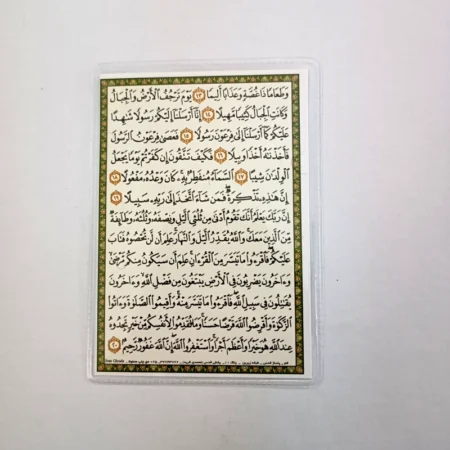 وَطَعَامًا ذَا غُصَّةٍ وَعَذَابًا أَلِيمًا ١٣ يَوْمَ تَرْجُفُ الْأَرْضُ وَالْجِبَالُ
وَكَانَتِ الْجِبَالُ كَثِيبًا مَّهِيلًا ١٤ إِنَّا أَرْسَلْنَا إِلَيْكُمْ رَسُولًا شَاهِدًا
عَلَيْكُمْ كَمَا أَرْسَلْنَا إِلَىٰ فِرْعَوْنَ رَسُولًا ١٥ فَعَصَىٰ فِرْعَوْنُ الرَّسُولَ
فَأَخَذْنَاهُ أَخْذًا وَبِيلًا ١٦ فَكَيْفَ تَتَّقُونَ إِن كَفَرْتُمْ يَوْمًا يَجْعَلُ
الْوِلْدَانَ شِيبًا ١٧ السَّمَاءُ مُنفَطِرٌ بِهِ كَانَ وَعْدُهُ مَفْعُولًا ١٨
إِنَّ هَٰذِهِ تَذْكِرَةٌ فَمَن شَاءَ اتَّخَذَ إِلَىٰ رَبِّهِ سَبِيلًا ١٩
إِنَّ رَبَّكَ يَعْلَمُ أَنَّكَ تَقُومُ أَدْنَىٰ مِن ثُلُثَيِ اللَّيْلِ وَنِصْفَهُ وَثُلُثَهُ وَطَائِفَةٌ
مِّنَ الَّذِينَ مَعَكَ وَاللَّهُ يُقَدِّرُ اللَّيْلَ وَالنَّهَارَ عَلِمَ أَن لَّن تُحْصُوهُ فَتَابَ
عَلَيْكُمْ فَاقْرَءُوا مَا تَيَسَّرَ مِنَ الْقُرْءَانِ عَلِمَ أَن سَيَكُونُ مِنكُم مَّرْضَىٰ
وَءَاخَرُونَ يَضْرِبُونَ فِي الْأَرْضِ يَبْتَغُونَ مِن فَضْلِ اللَّهِ وَءَاخَرُونَ
يُقَاتِلُونَ فِي سَبِيلِ اللَّهِ فَاقْرَءُوا مَا تَيَسَّرَ مِنْهُ وَأَقِيمُوا الصَّلَوٰةَ وَءَاتُوا
الزَّكَوٰةَ وَأَقْرِضُوا اللَّهَ قَرْضًا حَسَنًا وَمَا تُقَدِّمُوا لِأَنفُسِكُم مِّنْ خَيْرٍ تَجِدُوهُ
عِندَ اللَّهِ هُوَ خَيْرًا وَأَعْظَمَ أَجْرًا وَاسْتَغْفِرُوا اللَّهَ إِنَّ اللَّهَ غَفُورٌ رَّحِيمٌ ٢٠